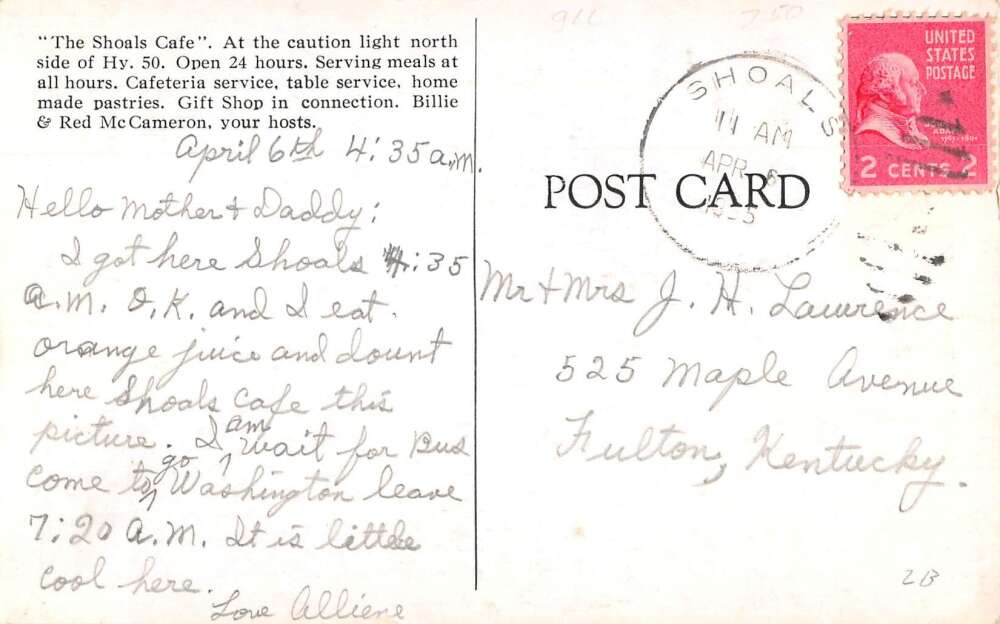 "The Shoals Cafe". At the caution light north
side of Hy. 50. Open 24 hours. Serving meals at
all hours. Cafeteria service, table service, home
made pastries. Gift Shop in connection. Billie
& Red McCameron, your hosts.
April 6th 4:35 a.m.
Hello Mother & Daddy:
I got here Shoals 4:35
a.m. O.K. and I eat
orange juice and dount
here Shoals Cafe this
picture. I am wait for Bus
come to go Washington leave
7:20 A.M. It is little
cool here.
Love Alliene
POST CARD
SHOALS
11 AM
APR 6
UNITED
STATES
POSTAGE
2 CENTS 2
Mr & Mrs J. H. Lawrence
525 Maple Avenue
Fulton, Kentucky.
2B